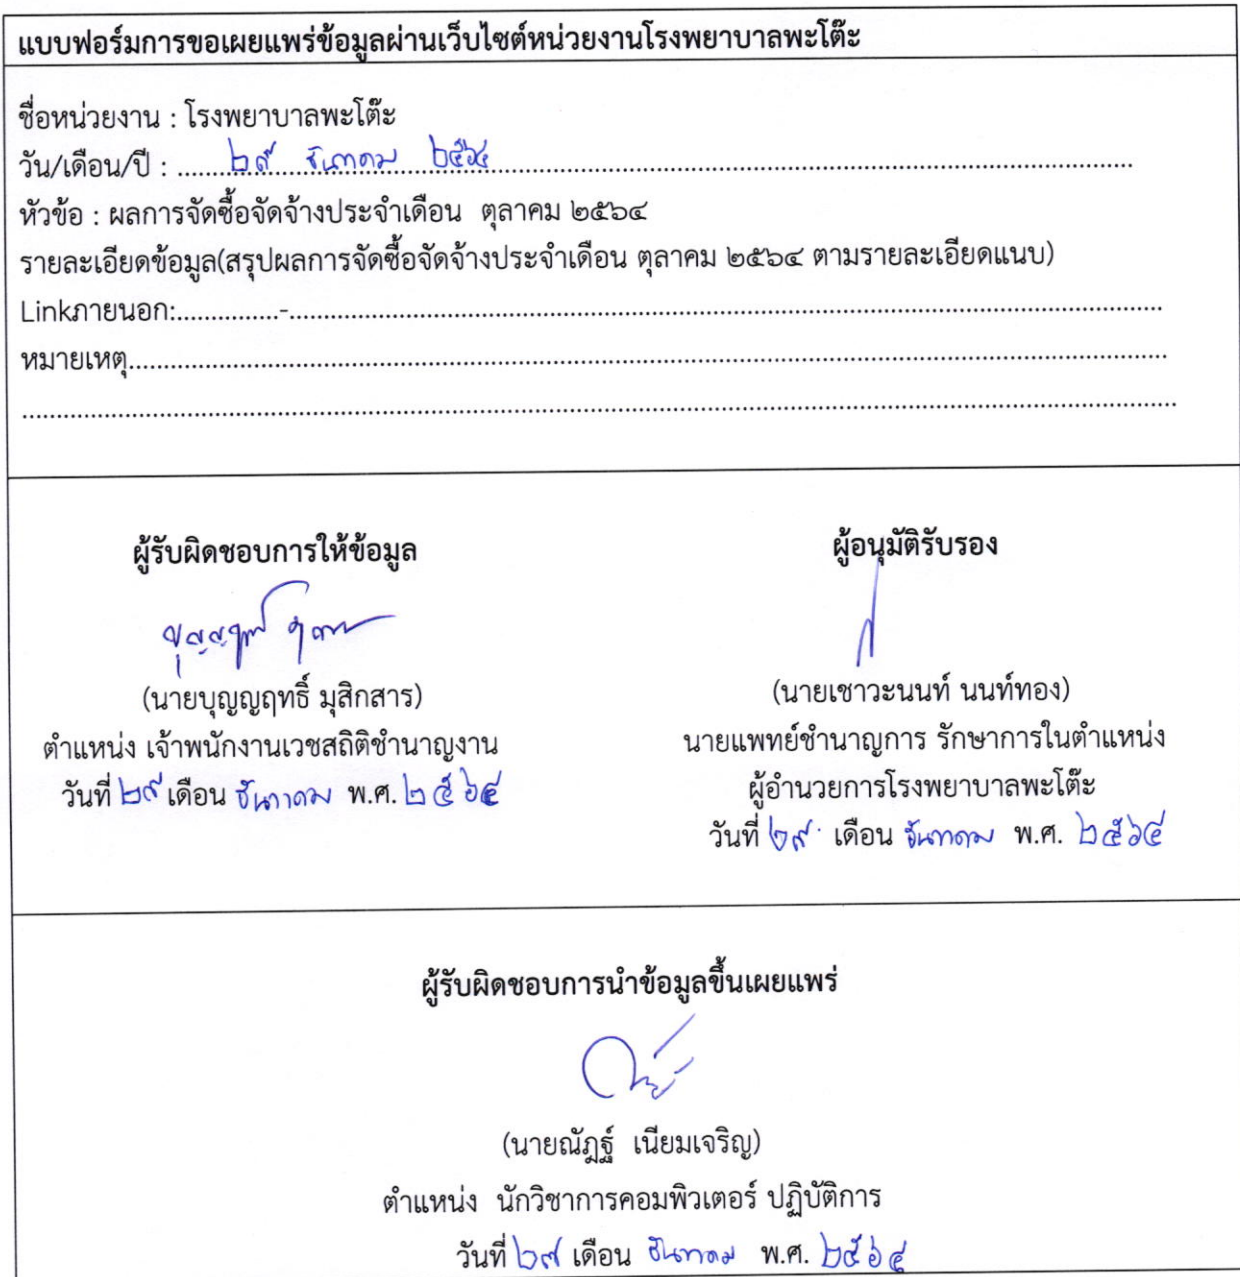 แบบฟอร์มการขอเผยแพร่ข้อมูลผ่านเว็บไซต์หน่วยงานโรงพยาบาลพะโต๊ะ
ชื่อหน่วยงาน : โรงพยาบาลพะโต๊ะ
วัน/เดือน/ปี : ๒๙ ธันวาคม ๒๕๖๔
หัวข้อ : ผลการจัดซื้อจัดจ้างประจำเดือน ตุลาคม ๒๕๖๔
รายละเอียดข้อมูล(สรุปผลการจัดซื้อจัดจ้างประจำเดือน ตุลาคม ๒๕๖๔ ตามรายละเอียดแนบ)
Linkภายนอก:...............-...............
หมายเหตุ...............
ผู้รับผิดชอบการให้ข้อมูล
(นายบุญญฤทธิ์ มุสิกสาร)
ตำแหน่ง เจ้าพนักงานเวชสถิติชำนาญงาน
วันที่ ๒๙ เดือน ธันวาคม พ.ศ. ๒๕๖๔
ผู้อนุมัติรับรอง
(นายเชาวะนนท์ นนท์ทอง)
นายแพทย์ชำนาญการ รักษาการในตำแหน่ง
ผู้อำนวยการโรงพยาบาลพะโต๊ะ
วันที่ ๒๙ เดือน ธันวาคม พ.ศ. ๒๕๖๔
ผู้รับผิดชอบการนำข้อมูลขึ้นเผยแพร่
(นายณัฏฐ์ เนียมเจริญ)
ตำแหน่ง นักวิชาการคอมพิวเตอร์ ปฏิบัติการ
วันที่ ๒๙ เดือน ธันวาคม พ.ศ. ๒๕๖๔